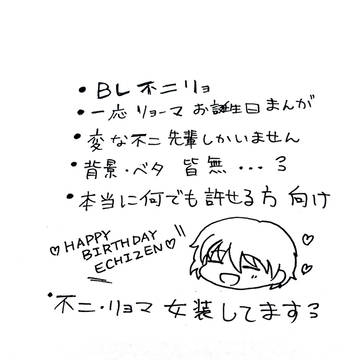 ・BL 不二リョ
・一応 リョーマ お誕生日まんが
・変な不二先輩しかいません
・背景・ベタ 皆無...ろ
・本当に何でも許せる方 向け
♡HAPPY
BIRTHDAY
ECHIZEN♡!!
・不二・リョマ 女装してますろ